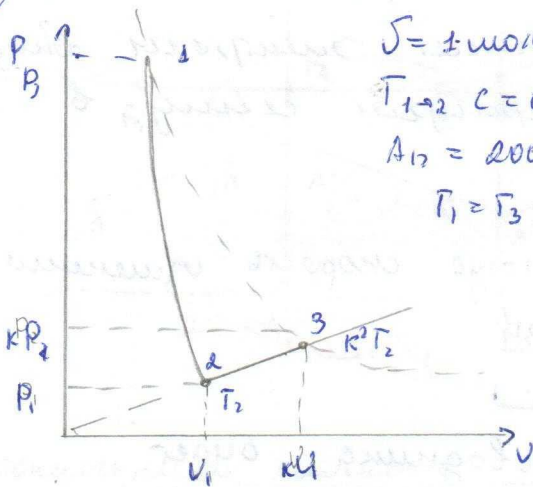 P
P₃
1
ν = 1 мол
T₁→₂ C =
A₁₂ = 200
T₁ = T₃
kP₁
3
k²T₂
2
P₁
T₂
V₁
kV₁
V